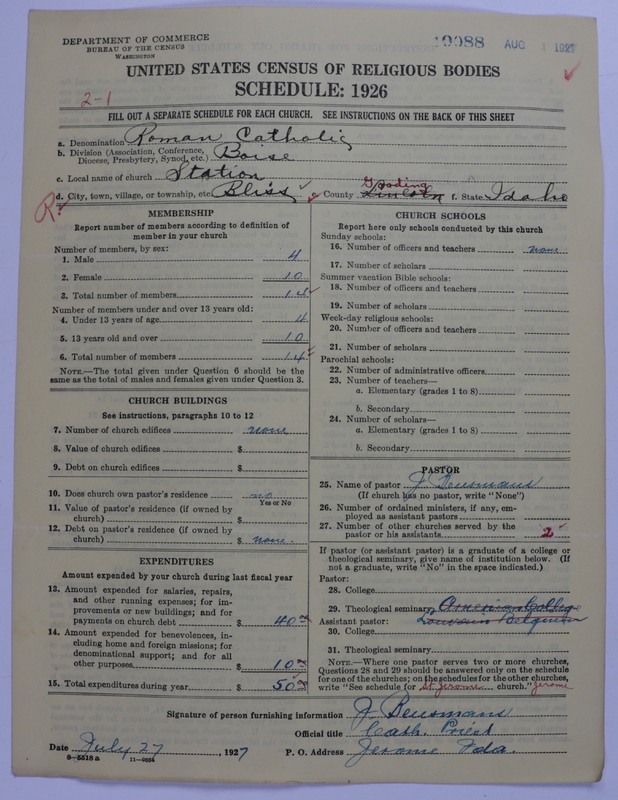 DEPARTMENT OF COMMERCE
BUREAU OF THE CENSUS
WASHINGTON
19988 AUG 1 1927
UNITED STATES CENSUS OF RELIGIOUS BODIES
SCHEDULE: 1926
2-1
FILL OUT A SEPARATE SCHEDULE FOR EACH CHURCH. SEE INSTRUCTIONS ON THE BACK OF THIS SHEET
a. Denomination Roman Catholic
b. Division (Association, Conference, Diocese, Presbytery, Synod, etc.) Boise
c. Local name of church Station
R. d. City, town, village, or township, etc. Bliss e. County Lincoln Gooding f. State Idaho
MEMBERSHIP
Report number of members according to definition of
member in your church
Number of members, by sex:
1. Male 4
2. Female 10
3. Total number of members 14
Number of members under and over 13 years old:
4. Under 13 years of age 4
5. 13 years old and over 10
6. Total number of members 14
NOTE.—The total given under Question 6 should be
same as the total of males and females given under Question 3.
CHURCH BUILDINGS
See instructions, paragraphs 10 to 12
7. Number of church edifices none
8. Value of church edifices $
9. Debt on church edifices $
10. Does church own pastor's residence no
Yes or No
11. Value of pastor's residence (if owned by
church) $
12. Debt on pastor's residence (if owned by
church) $ none.
EXPENDITURES
Amount expended by your church during last fiscal year
13. Amount expended for salaries, repairs,
and other running expenses; for im-
provements or new buildings; and for
payments on church debt $ 40
14. Amount expended for benevolences, in-
cluding home and foreign missions; for
denominational support; and for all
other purposes $ 10
15. Total expenditures during year $ 50
CHURCH SCHOOLS
Report here only schools conducted by this church
Sunday schools:
16. Number of officers and teachers none
17. Number of scholars
Summer vacation Bible schools:
18. Number of officers and teachers
19. Number of scholars
Week-day religious schools:
20. Number of officers and teachers
21. Number of scholars
Parochial schools:
22. Number of administrative officers
23. Number of teachers—
a. Elementary (grades 1 to 8)
b. Secondary
24. Number of scholars—
a. Elementary (grades 1 to 8)
b. Secondary
PASTOR
25. Name of pastor J. Beusmans
(If church has no pastor, write "None")
26. Number of ordained ministers, if any, em-
ployed as assistant pastors
27. Number of other churches served by the
pastor or his assistants 2
If pastor (or assistant pastor) is a graduate of a college or
theological seminary, give name of institution below. (If
not a graduate, write "No" in the space indicated.)
Pastor:
28. College
29. Theological seminary American College
Assistant pastor: Louvain Belgium
30. College
31. Theological seminary
NOTE.—Where one pastor serves two or more churches,
Questions 28 and 29 should be answered only on the schedule
for one of the churches; on the schedules for the other churches,
write "See schedule for St. Jerome church." Jerome
Signature of person furnishing information J. Beusmans
Official title Cath. Priest
Date July 27, 1927 P. O. Address Jerome Ida.
8-5518 a 11-9554